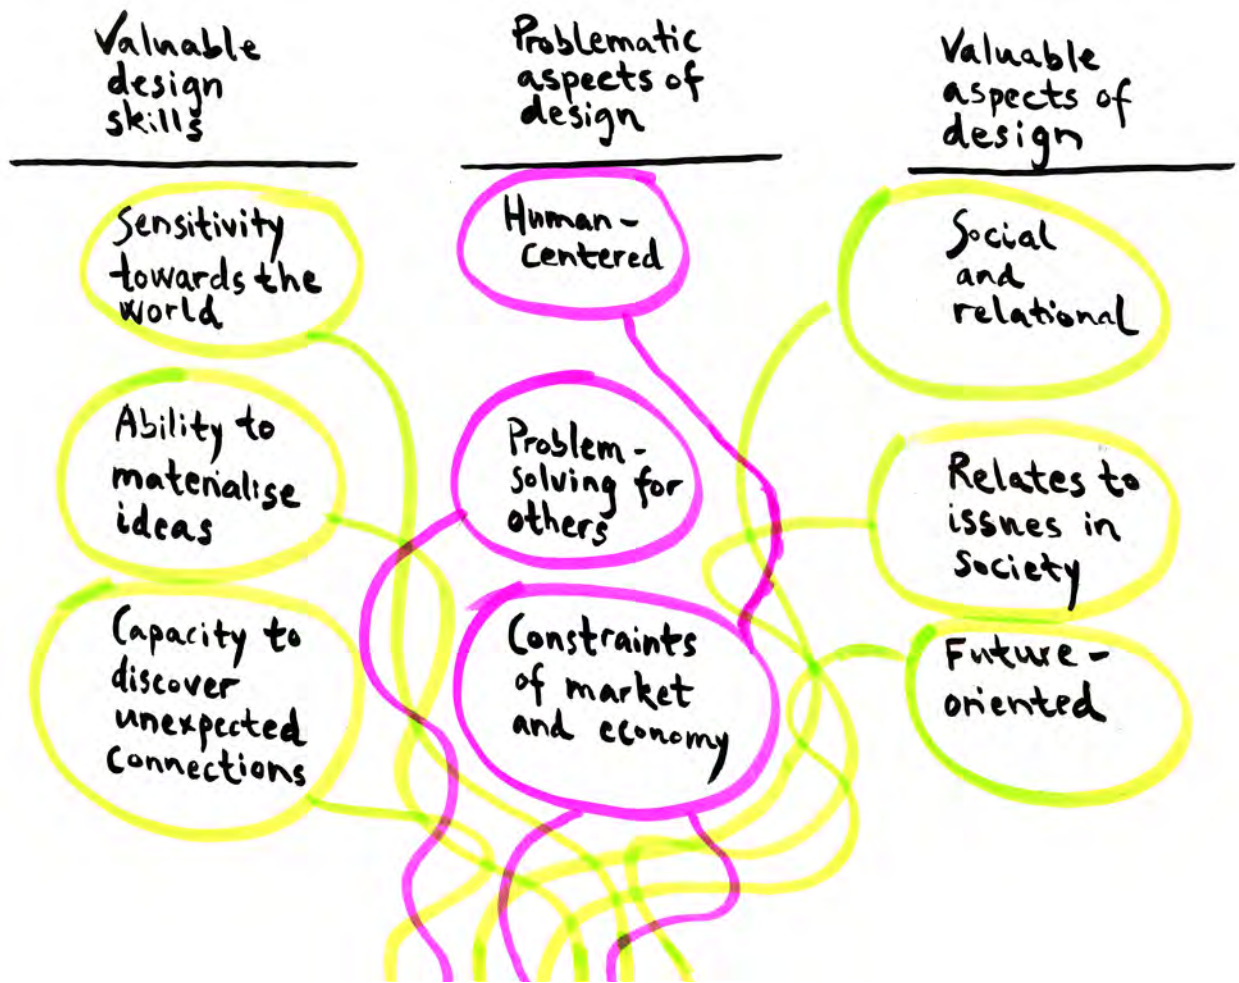 Valuable
design
skills
Sensitivity
towards the
world
Ability to
materialise
ideas
Capacity to
discover
unexpected
connections
Problematic
aspects of
design
Human-
centered
Problem-
solving for
others
Constraints
of market
and economy
Valuable
aspects of
design
Social
and
relational
Relates to
issues in
society
Future-
oriented